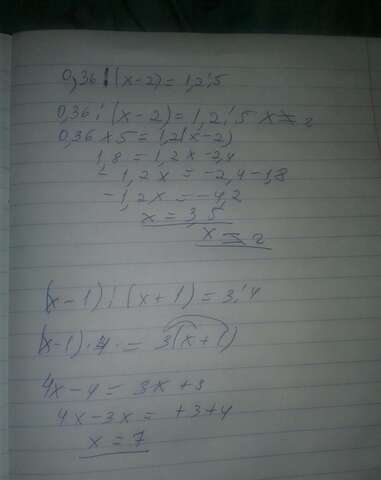 0,36:(x-2)=1,2:5
0,36:(x-2)=1,2:5 x≠2
0,36×5=1,2(x-2)
1,8=1,2x-2,4
-1,2x=-2,4-1,8
-1,2x=-4,2
x=3,5
x≠2
(x-1):(x+1)=3:4
(x-1)·4·=3(x+1)
4x-4=3x+3
4x-3x=+3+4
x=7